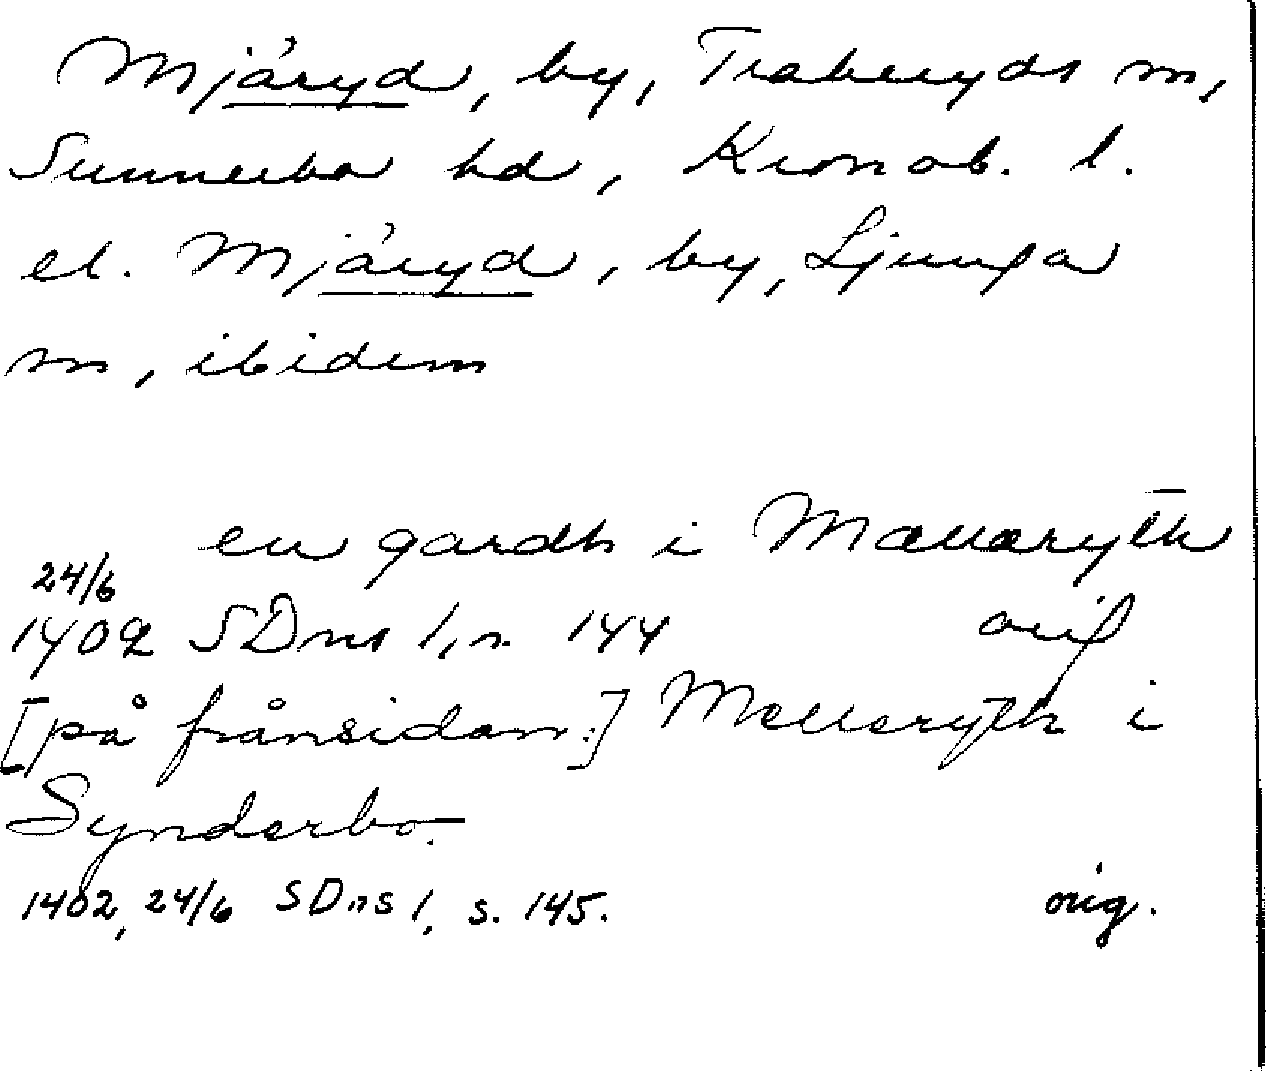 Mjäryd, by, Traheryds sn,
Sunnerbo hd, Kronob. l.
el. Mjäryd, by, Ljunga
sn, ibidem
en gardh i Mællaryth
24/6
1402 SDns 1, s. 144 orig
[på frånsidan:] Melleryth i
Synderbo.
1402, 24/6 SDns 1, s. 145. orig.